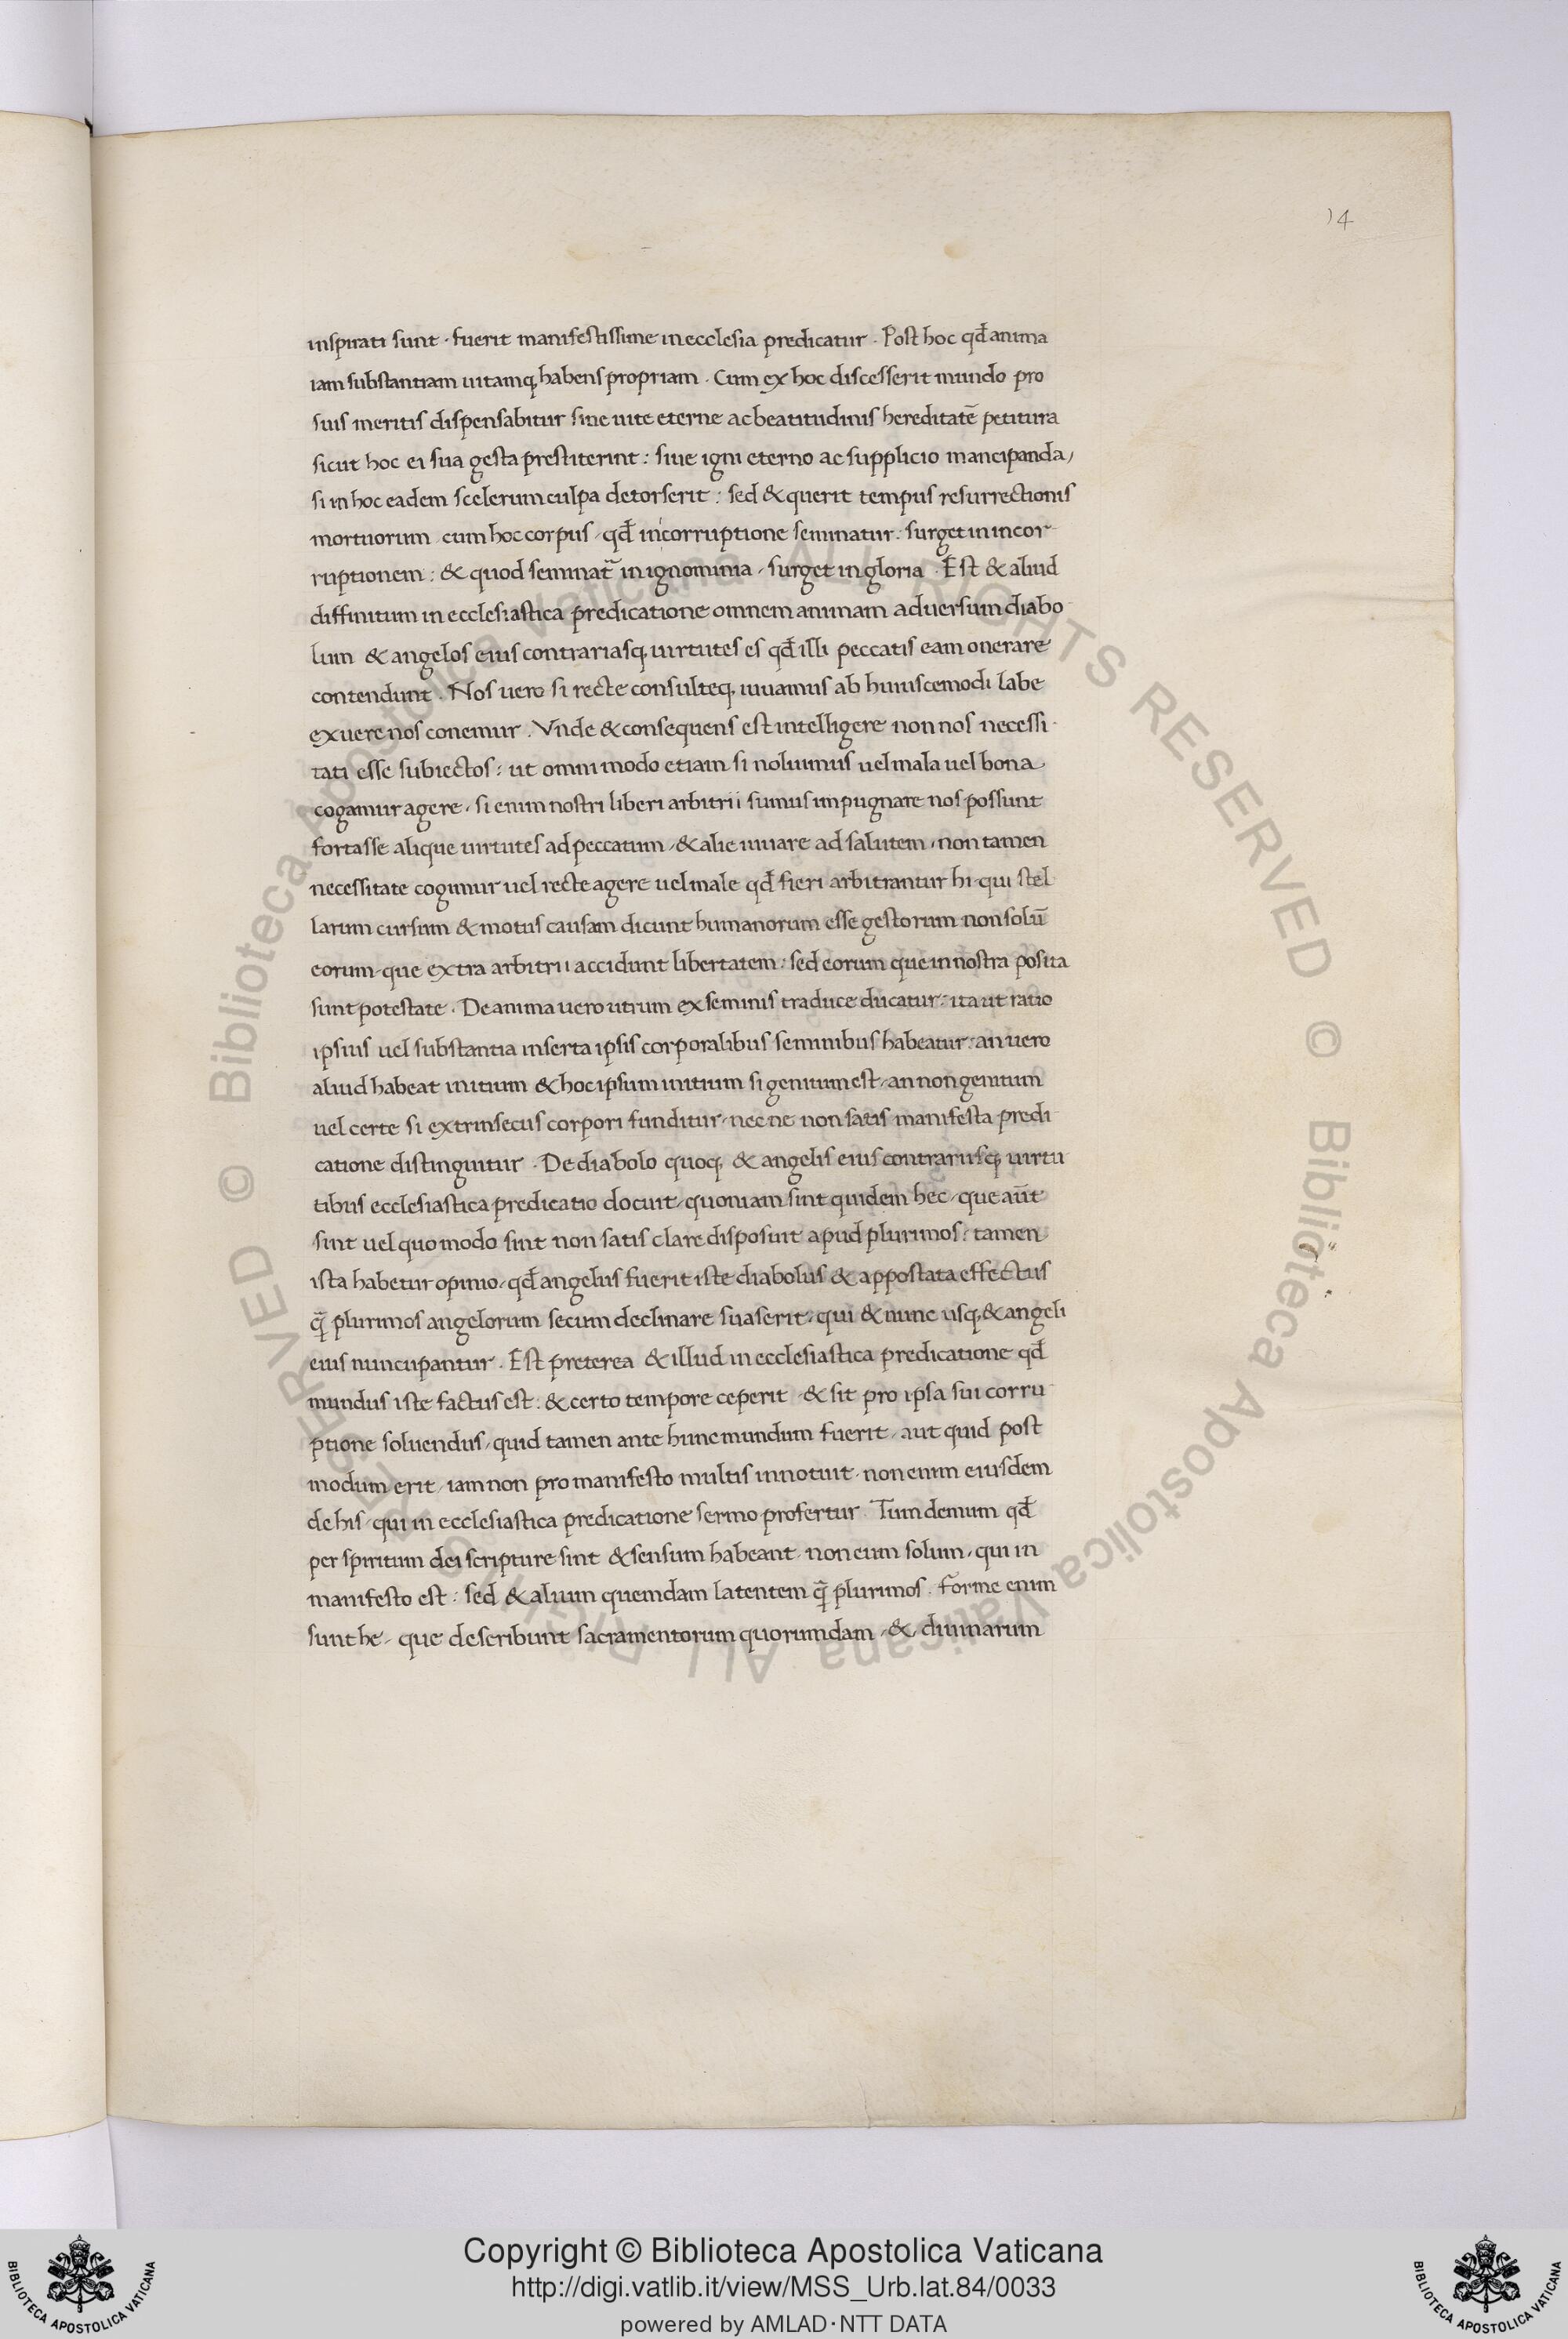 14
inspirati sunt · fuerit manifestissime in ecclesia predicatur · Post hoc qđ anima
iam substantiam uitamq; habens propriam · Cum ex hoc discesserit mundo pro
suis meritis dispensabitur siue uite eterne ac beatitudinis hereditatē petitura
sicut hoc ei sua gesta prestiterint : siue igni eterno ac supplicio mancipanda /
si in hoc eadem scelerum culpa detorserit : sed & querit tempus resurrectionis
mortuorum cum hoc corpus / qđ in corruptione seminatur : surget in incor
ruptionem : & quod seminat᷑ in ignominia / surget in gloria · Est & aliud
diffinitum in ecclesiastica predicatione omnem animam aduersum diabo
lum & angelos eius contrariasq; uirtutes es qđ illi peccatis eam onerare
contendunt · Nos uero si recte consulteq; uiuamus ab huiuscemodi labe
exuere nos conemur · Vnde & consequens est intelligere non nos necessi
tati esse subiectos : ut omni modo etiam si nolumus uel mala uel bona
cogamur agere · si enim nostri liberi arbitrii sumus impugnare nos possunt
fortasse alique uirtutes ad peccatum / & alie iuuare ad salutem / non tamen
necessitate cogimur uel recte agere uel male qđ fieri arbitrantur hi · qui stel
larum cursum & motus causam dicunt humanorum esse gestorum non solū
eorum · que extra arbitrii accidunt libertatem : sed eorum que in nostra posita
sunt potestate · De anima uero utrum ex seminis traduce ducatur : ita ut ratio
ipsius uel substantia inserta ipsis corporalibus seminibus habeatur : an uero
aliud habeat initium & hoc ipsum initium si genitum est / an non genitum
uel certe si extrinsecus corpori funditur / nec ne non satis manifesta predi
catione distinguitur · De diabolo quoq; & angelis eius contrariisq; uirtu
tibus ecclesiastica predicatio docuit / quoniam sint quidem hec / que aūt
sint uel quo modo sint non satis clare disposuit apud plurimos : tamen
ista habetur opinio / qđ angelus fuerit iste diabolus & appostata effectus
q̄ plurimos angelorum secum declinare suaserit / qui & nunc usq; & angeli
eius nuncupantur · Est preterea & illud in ecclesiastica predicatione qđ
mundus iste factus est : & certo tempore ceperit · & sit pro ipsa sui corru
ptione soluendus / quid tamen ante hunc mundum fuerit / aut quid post
modum erit / iam non pro manifesto multis innotuit · non enim eiusdem
de his / qui in ecclesiastica predicatione sermo profertur · Tum demum qđ
per spiritum dei scripture sint & sensum habeant · non eum solum / qui in
manifesto est : sed & alium quemdam latentem q̄ plurimos · Forme enim
sunt he / que describunt sacramentorum quorumdam / & diuinarum
© Biblioteca Apostolica Vaticana ALL RIGHTS RESERVED © Biblioteca Apostolica Vaticana ALL RIGHTS RESERVED
Copyright © Biblioteca Apostolica Vaticana
http://digi.vatlib.it/view/MSS_Urb.lat.84/0033
powered by AMLAD·NTT DATA
BIBLIOTECA APOSTOLICA VATICANA
BIBLIOTECA APOSTOLICA VATICANA